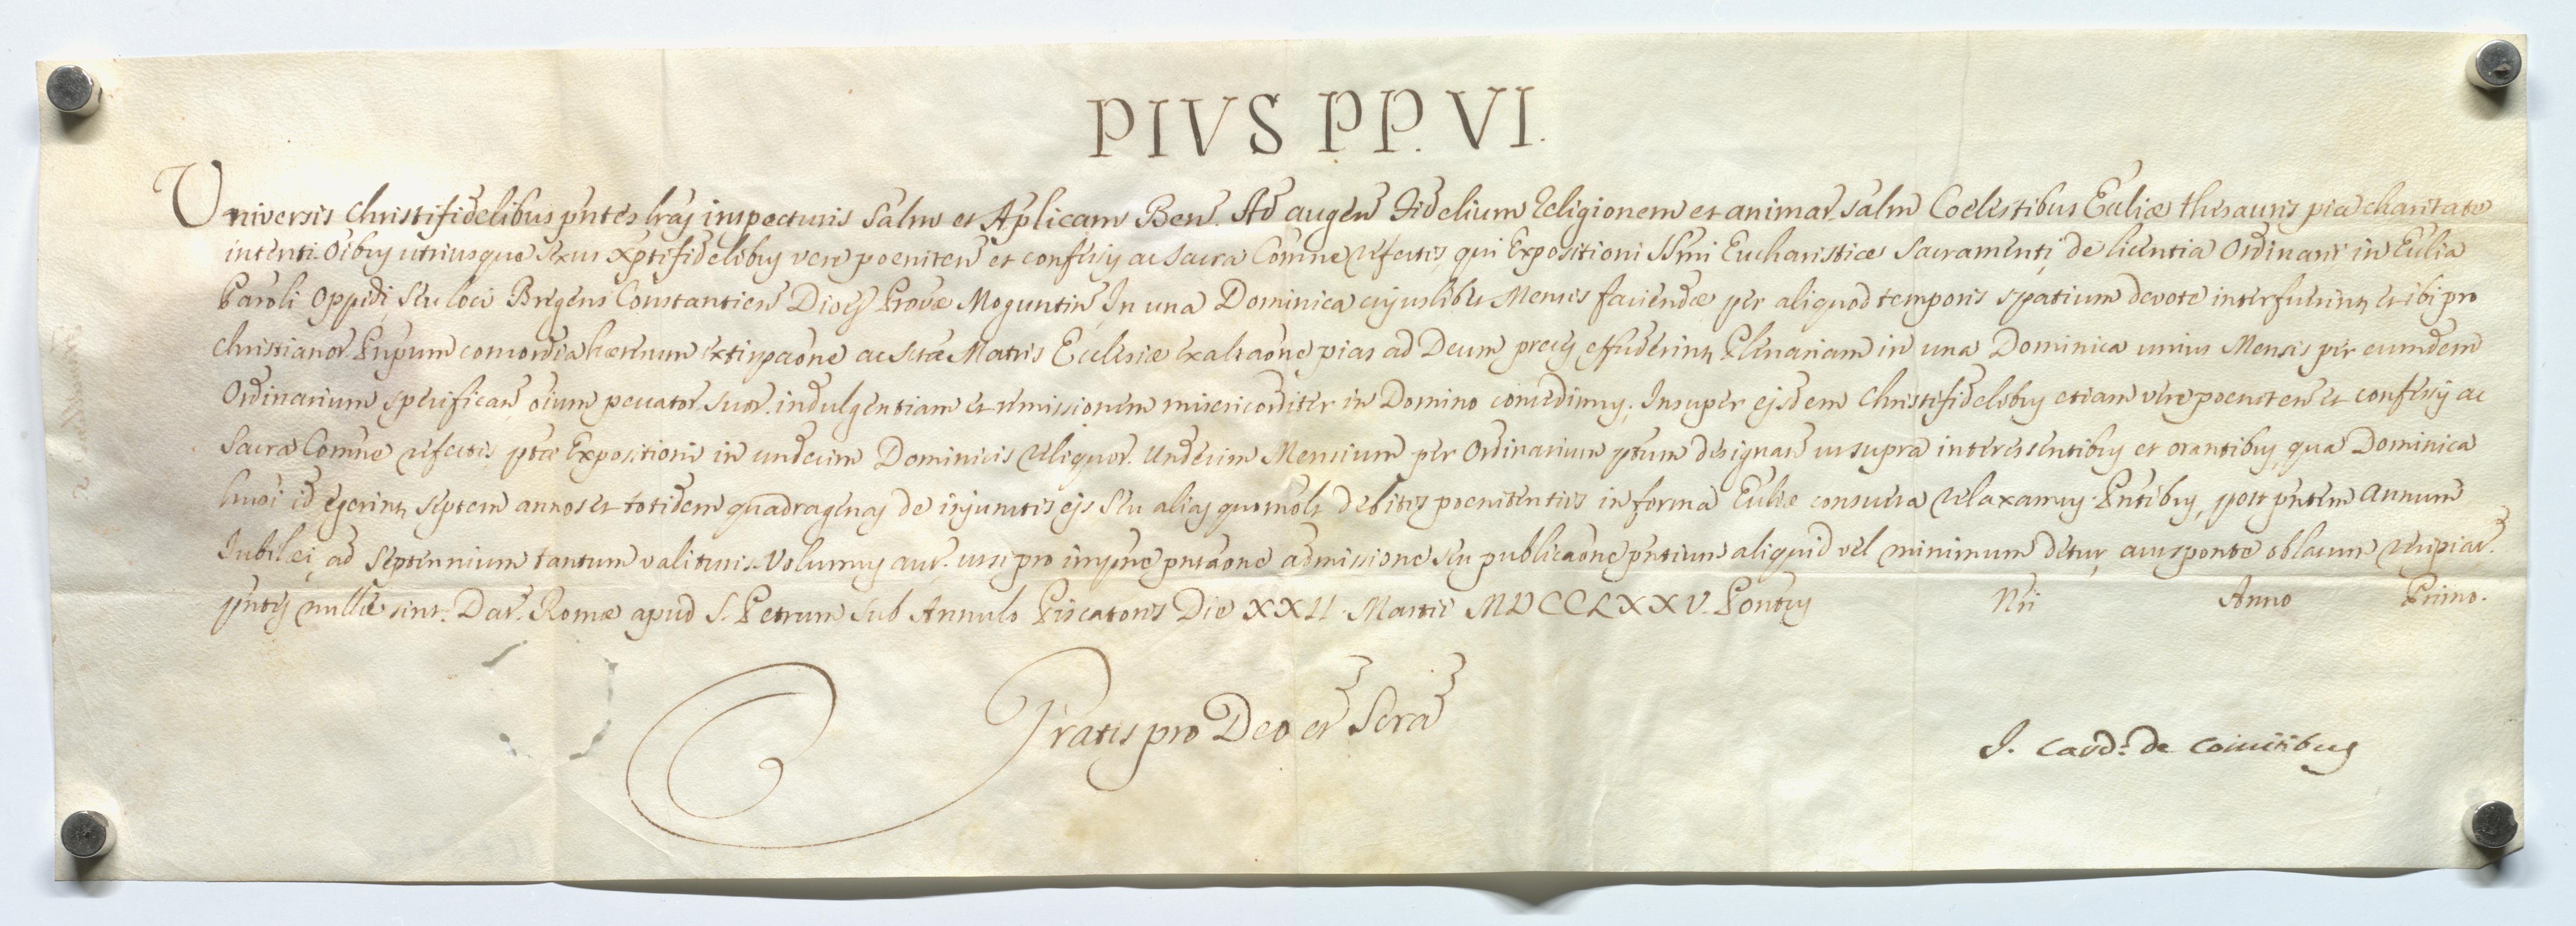 PIVS PP. VI.
Universis Christifidelibus pñtes lras inspecturis Salm et Aplicam Ben. Ad augen Fidelium Religionem et animar. salm Coelestibus Eccliæ thesauris pia charitate
intenti. Oibus utriusque sexus Xptifidelibus vere poeniten et confessis ac Sacra Comñe refectis, qui Expositioni SSmi Eucharisticæ Sacramenti, de licentia Ordinarii in Ecclia
Paroli Oppidi, seu loci Bregens Constantien Dioeс Provæ Moguntin, In una Dominica cujuslibet Mensis faciendæ per aliquod temporis spatium devote interfuerint, et ibi pro
Christianor. Prinpum concordia hæresum extirpaone ac Sctæ Matris Ecclesiæ exaltaone pias ad Deum preces effuderint, Plenariam in una Dominica unius Mensis per eumdem
Ordinarium specifican oium peccator. suor. indulgentiam et remissionem misericorditer in Domino concedimus. Insuper ejsdem Christifidelibus etiam vere poeniten et confessis ac
Sacra Comñe refectis ptæ Expositioni in undecim Dominicis reliquor. undecim Mensium per Ordinarium ptum designan ut supra interessentibus et orantibus, qua Dominica
hmoi id egerint, septem annos et totidem quadragenas de injunctis ejs seu alias quomolt debitis poenitentiis in forma Eccliæ consueta relaxamus. Pntibus, post pñtem Annum
Jubilei, ad Septennium tantum valituris. Volumus aut. ut si pro impñe pntaone admissione seu publicaone pñtium aliquid vel minimum detur, aut sponte oblatum recipiar.
pntes nullæ sint. Dat. Romæ apud S. Petrum sub Annulo Piscatoris Die XXII Martii MDCCLXXV. Pontus Nri Anno Primo.
Gratis pro Deo et Scra
I. Card. de Comitibus